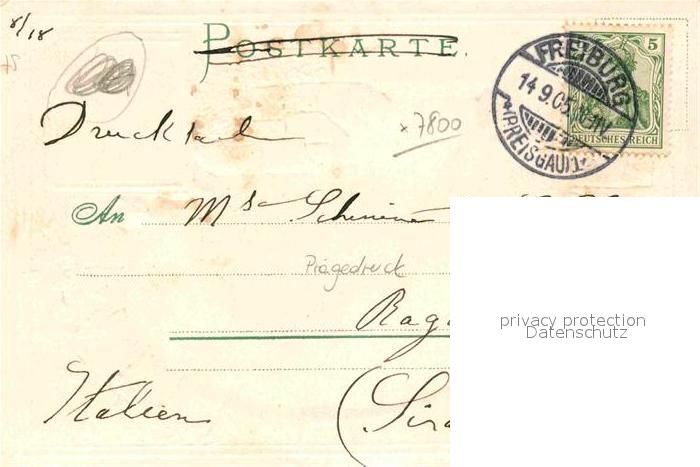 8/18
POSTKARTE.
5
FREIBURG
14.9.05
(BREISGAU)1.
DEUTSCHES REICH
Drucksache
x7800
An Ms
Prägedruck
Rag
Italien (Sira
privacy protection
Datenschutz